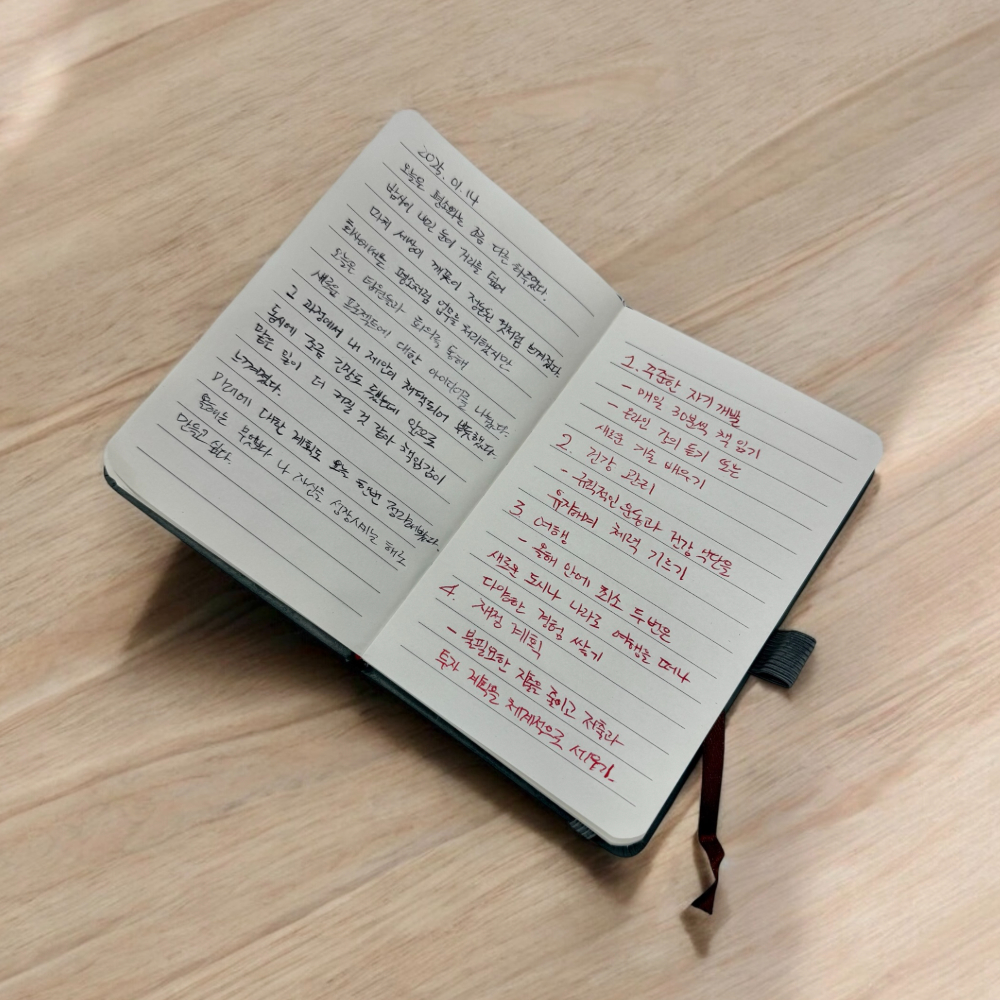 2025. 01. 14
오늘은 평소와는 조금 다른 하루였다.
밤사이 내린 눈이 거리를 덮어
마치 세상이 깨끗이 정돈된 것처럼 느껴졌다.
회사에서는 평소처럼 업무를 처리했지만,
오늘은 팀원들과 회의를 통해
새로운 프로젝트에 대한 아이디어를 나눴다.
그 과정에서 내 제안이 채택되어 뿌듯했다.
동시에 조금 긴장도 됐는데 앞으로
맡은 일이 더 커질 것 같아 책임감이
느껴졌다.
미래에 대한 계획도 오늘 한번 정리해봤다.
올해는 무엇보다 나 자신을 성장시키는 해로
만들고 싶다.
1. 꾸준한 자기 개발
- 매일 30분씩 책 읽기
- 온라인 강의 듣기 또는
새로운 기술 배우기
2. 건강 관리
- 규칙적인 운동과 건강 식단을
유지하며 체력 기르기
3. 여행
- 올해 안에 최소 두 번은
새로운 도시나 나라로 여행을 떠나
다양한 경험 쌓기
4. 재정 계획
- 불필요한 지출을 줄이고 저축과
투자 계획을 체계적으로 세우기.